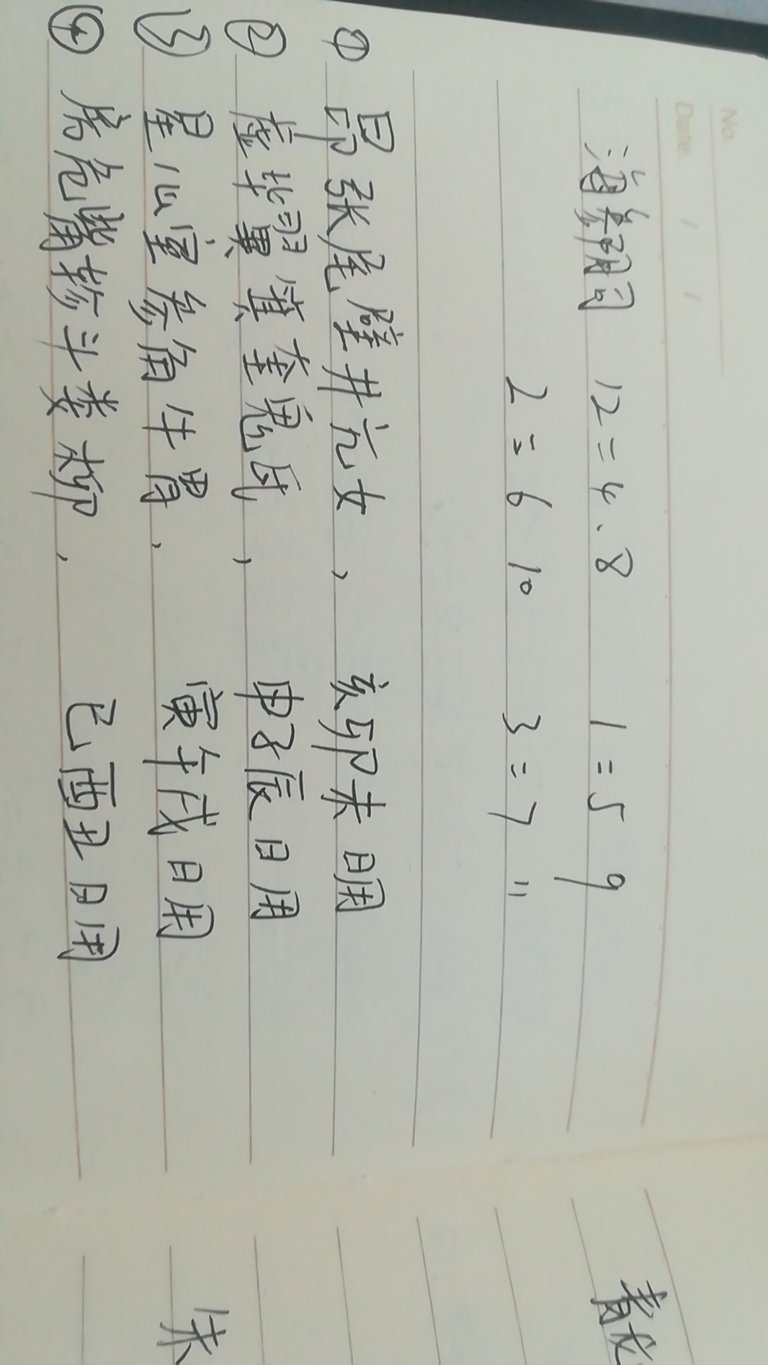 No.
Date. / /
12=4.8 1=5 9
2=6 10 3=7 11
① 昴张尾壁井亢女, 亥卯未日用
② 虚毕翼箕奎鬼氐, 申子辰日用
③ 星心室参角牛胃, 寅午戌日用
④ 房危觜轸斗娄柳, 巳酉丑日用
青龙
朱